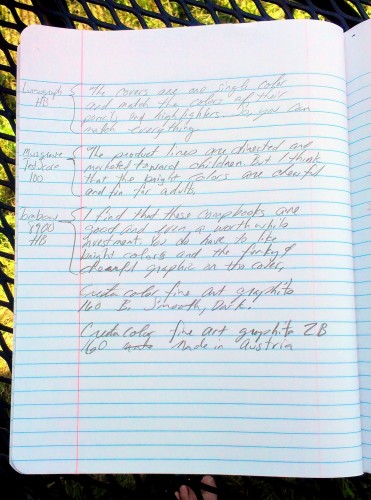 Lumograph HB
The covers are one single color
and match the colors of their
pencils and highlighters. So you can
match everything
Musgrave Test Score 100
The product lines are directed and
marketed toward children. But I think
that the bright colors are cheerful
and fun for adults
tombow 8900 HB
I find that these compbooks are
good and even a worthwhile
investment. You do have to like
bright colors and the funky &
cheerful graphic on the cover.
Cretacolor fine art graphite
160 B. Smooth, Dark.
Cretacolor fine art graphite 2B
160 Made in Austria